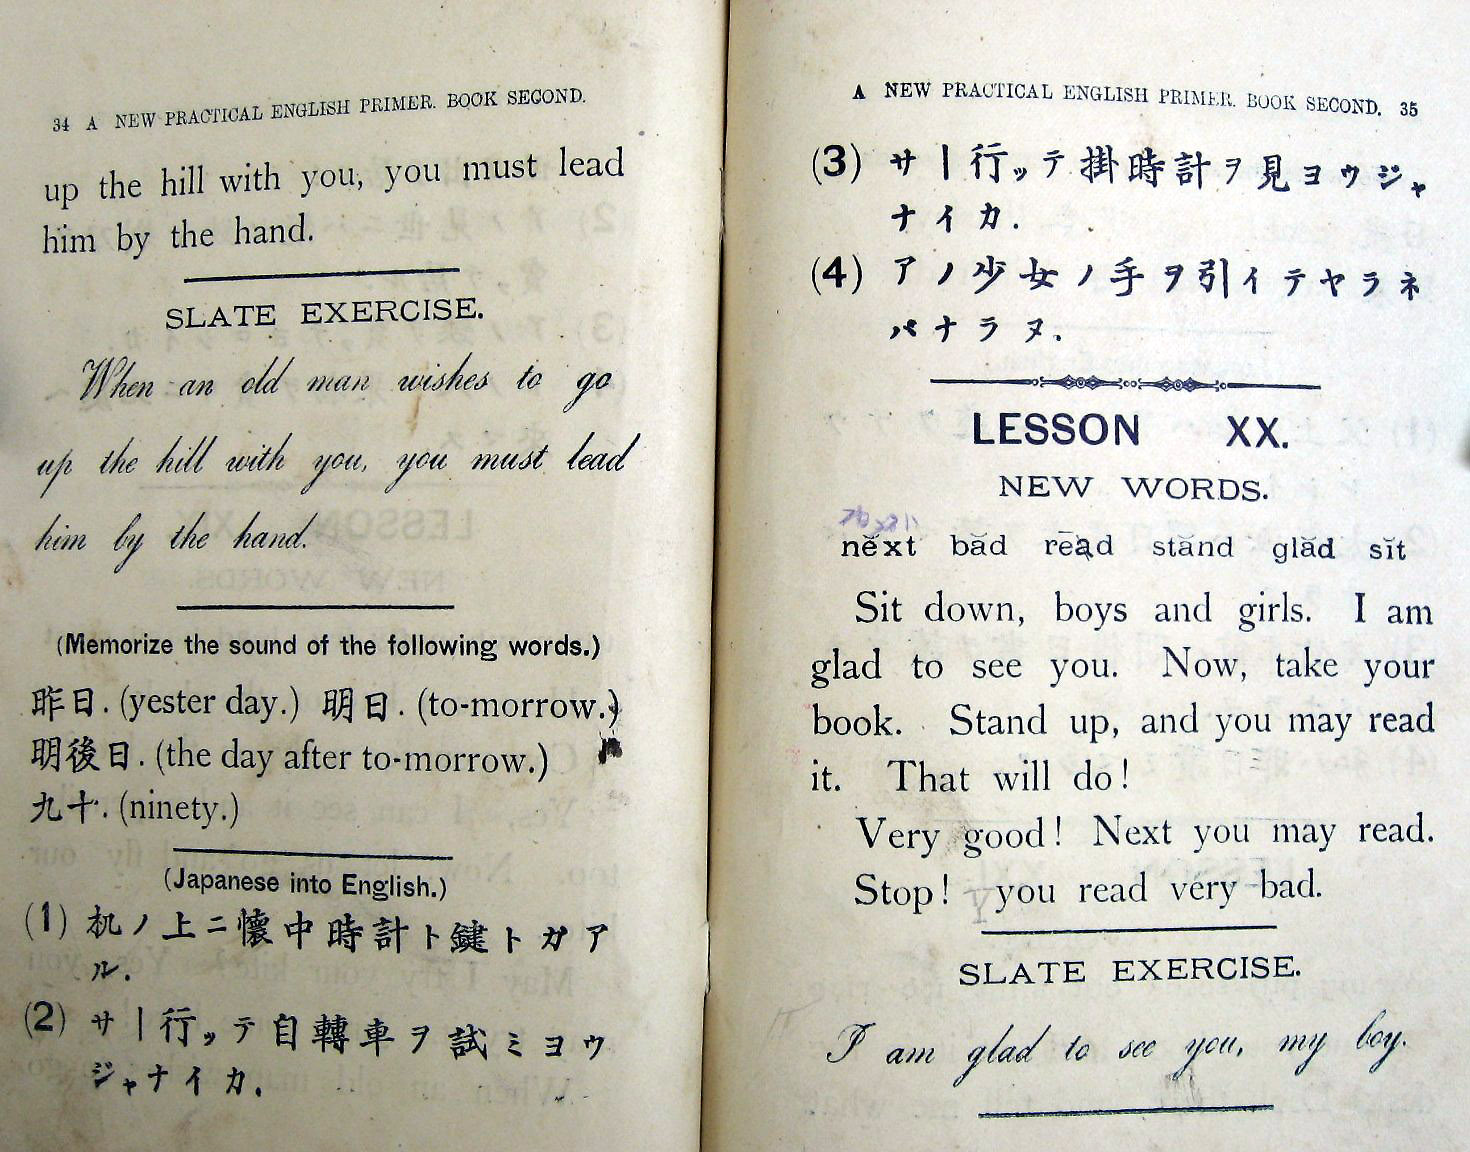 34 A NEW PRACTICAL ENGLISH PRIMER. BOOK SECOND.
up the hill with you, you must lead
him by the hand.
SLATE EXERCISE.
When an old man wishes to go
up the hill with you, you must lead
him by the hand.
(Memorize the sound of the following words.)
昨日. (yester day.) 明日. (to-morrow.)
明後日. (the day after to-morrow.)
九十. (ninety.)
(Japanese into English.)
(1) 机ノ上ニ懷中時計ト鍵トガア
ル.
(2) サー行ッテ自轉車ヲ試ミヨウ
ジャナイカ.
A NEW PRACTICAL ENGLISH PRIMER. BOOK SECOND. 35
(3) サー行ッテ掛時計ヲ見ヨウジャ
ナイカ.
(4) アノ少女ノ手ヲ引イテヤラネ
バナラヌ.
LESSON XX.
NEW WORDS.
nĕxt băd rēad stănd glăd sĭt
Sit down, boys and girls. I am
glad to see you. Now, take your
book. Stand up, and you may read
it. That will do!
Very good! Next you may read.
Stop! you read very bad.
SLATE EXERCISE.
I am glad to see you, my boy.